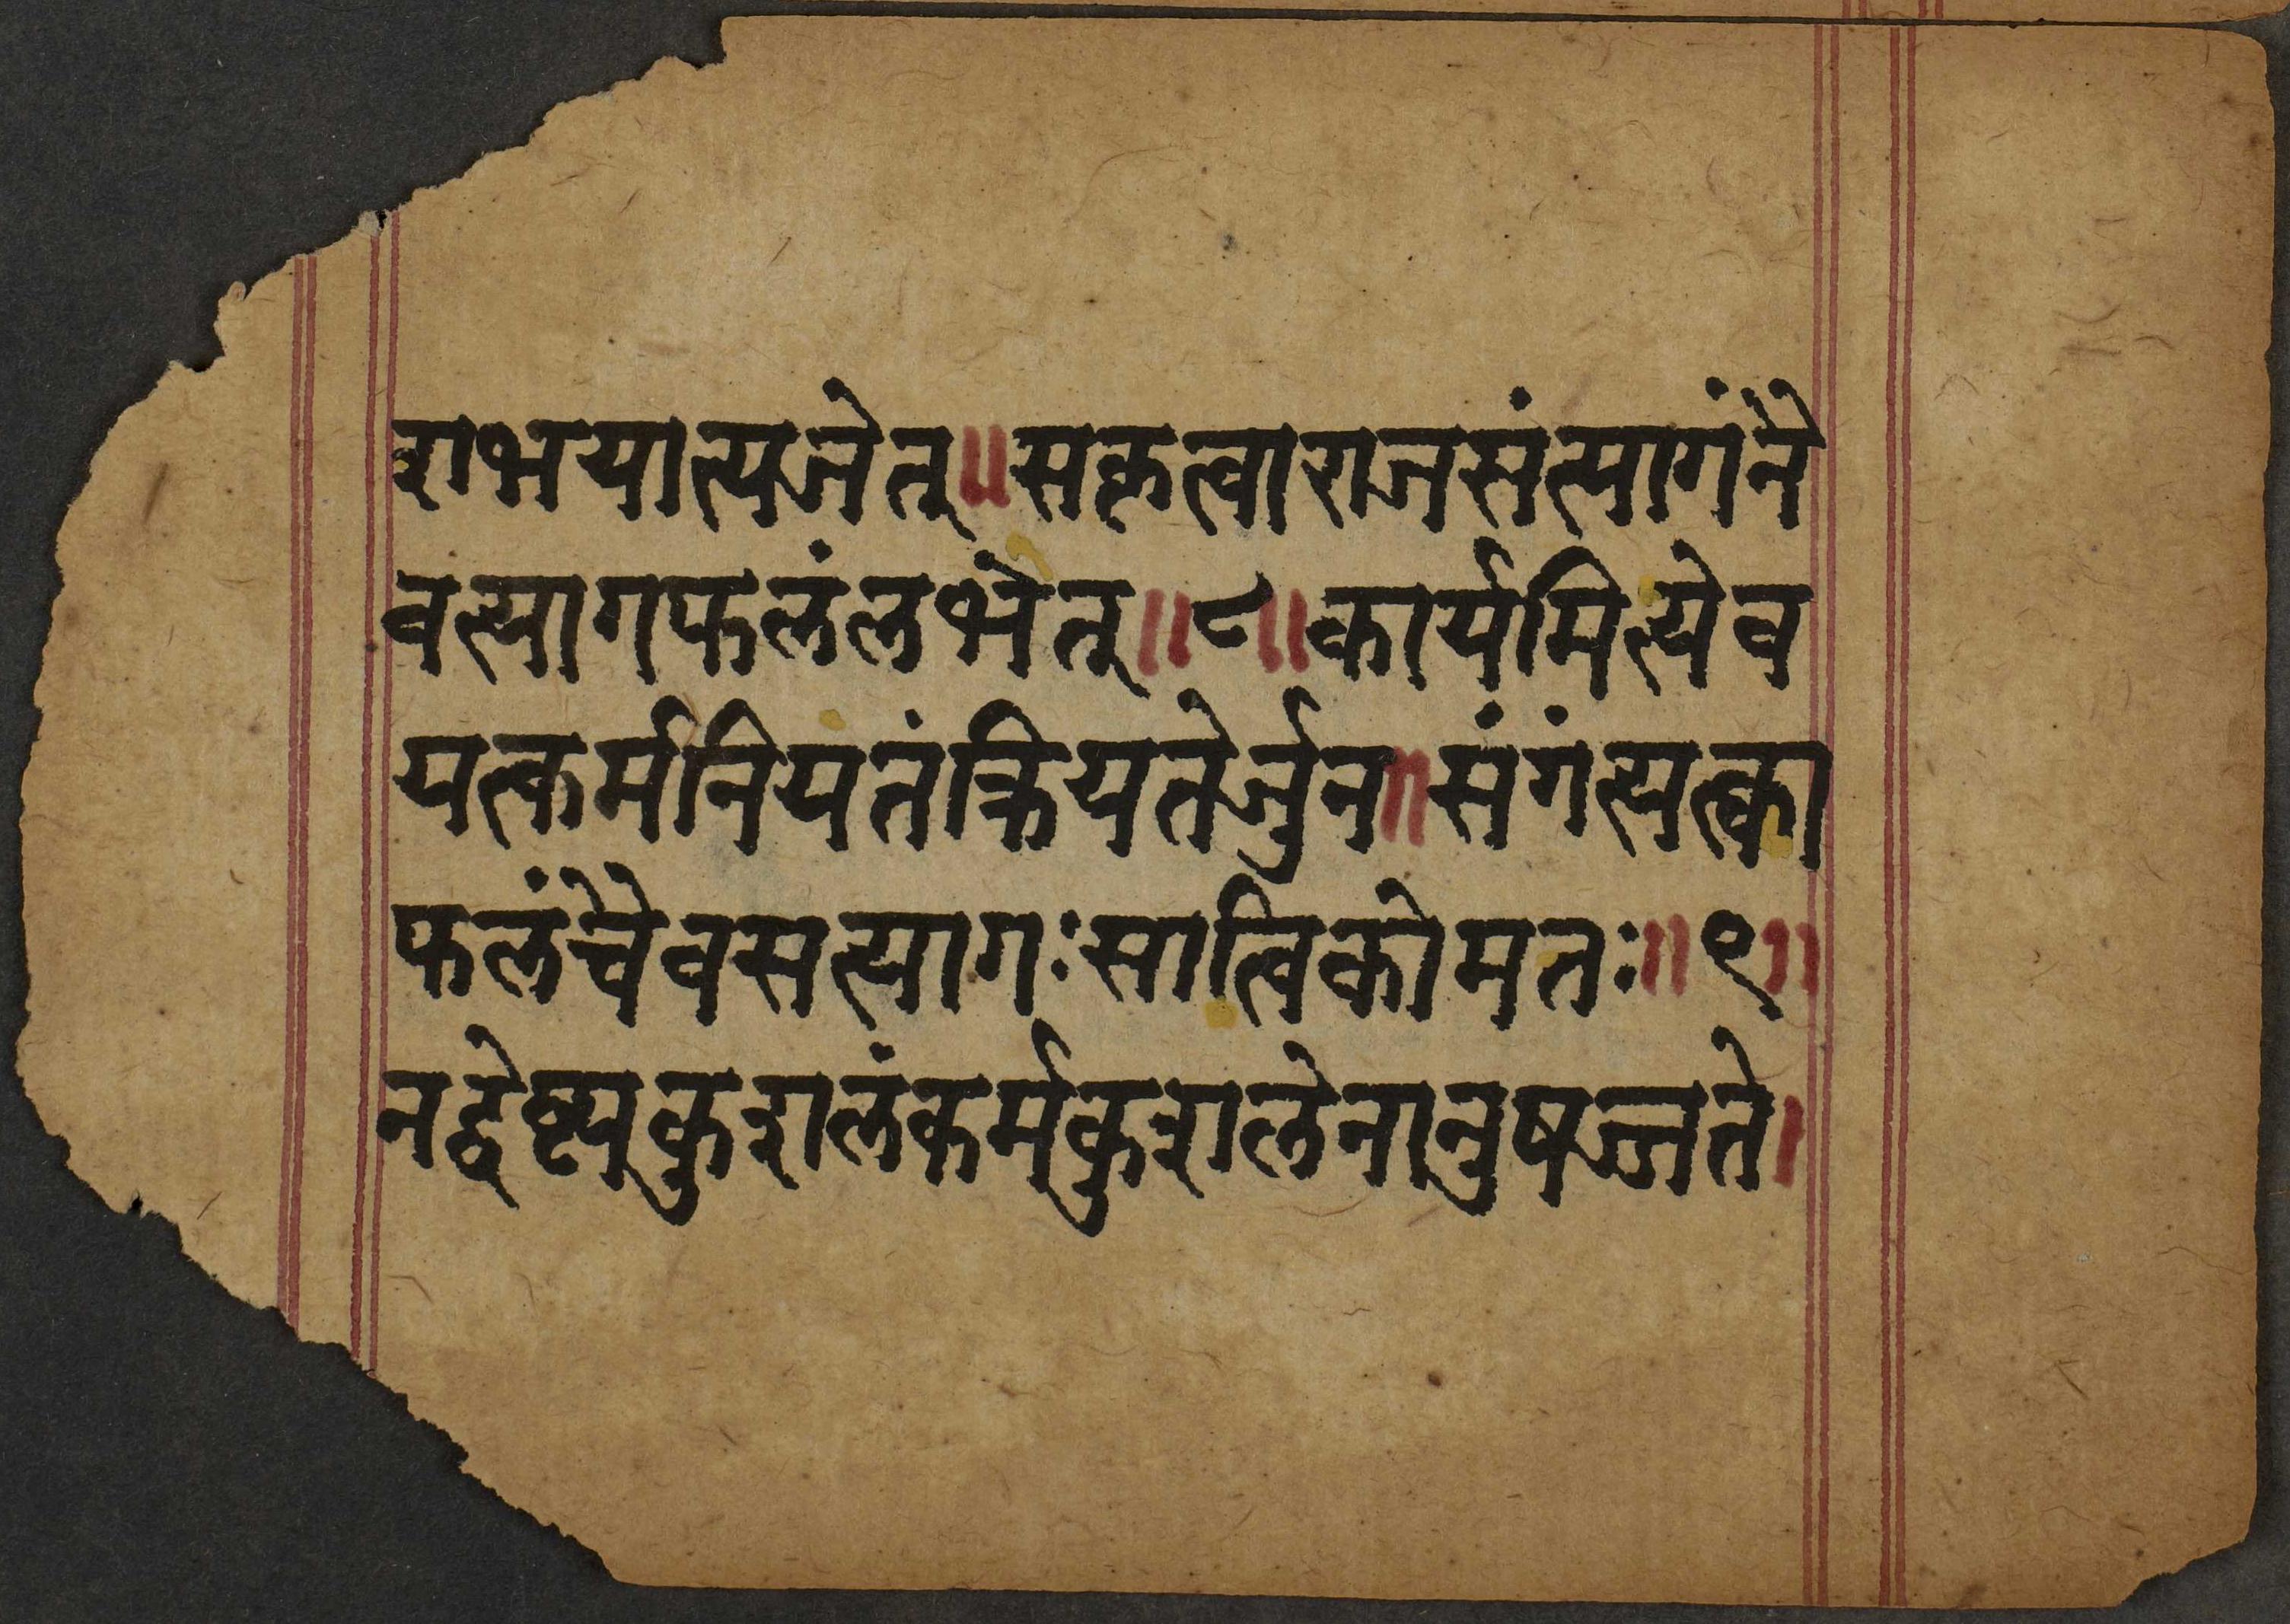 शभयात्यजेत्॥सकृत्वाराजसंत्यागंनै
वत्यागफलंलभेत्॥८॥कार्यमित्येव
यत्कर्मनियतंक्रियतेर्जुन॥संगंत्यत्का
फलंचैवसत्यागःसात्विकोमतः॥९॥
नद्वेष्ट्यकुशलंकर्मकुशलेनानुषज्जते।